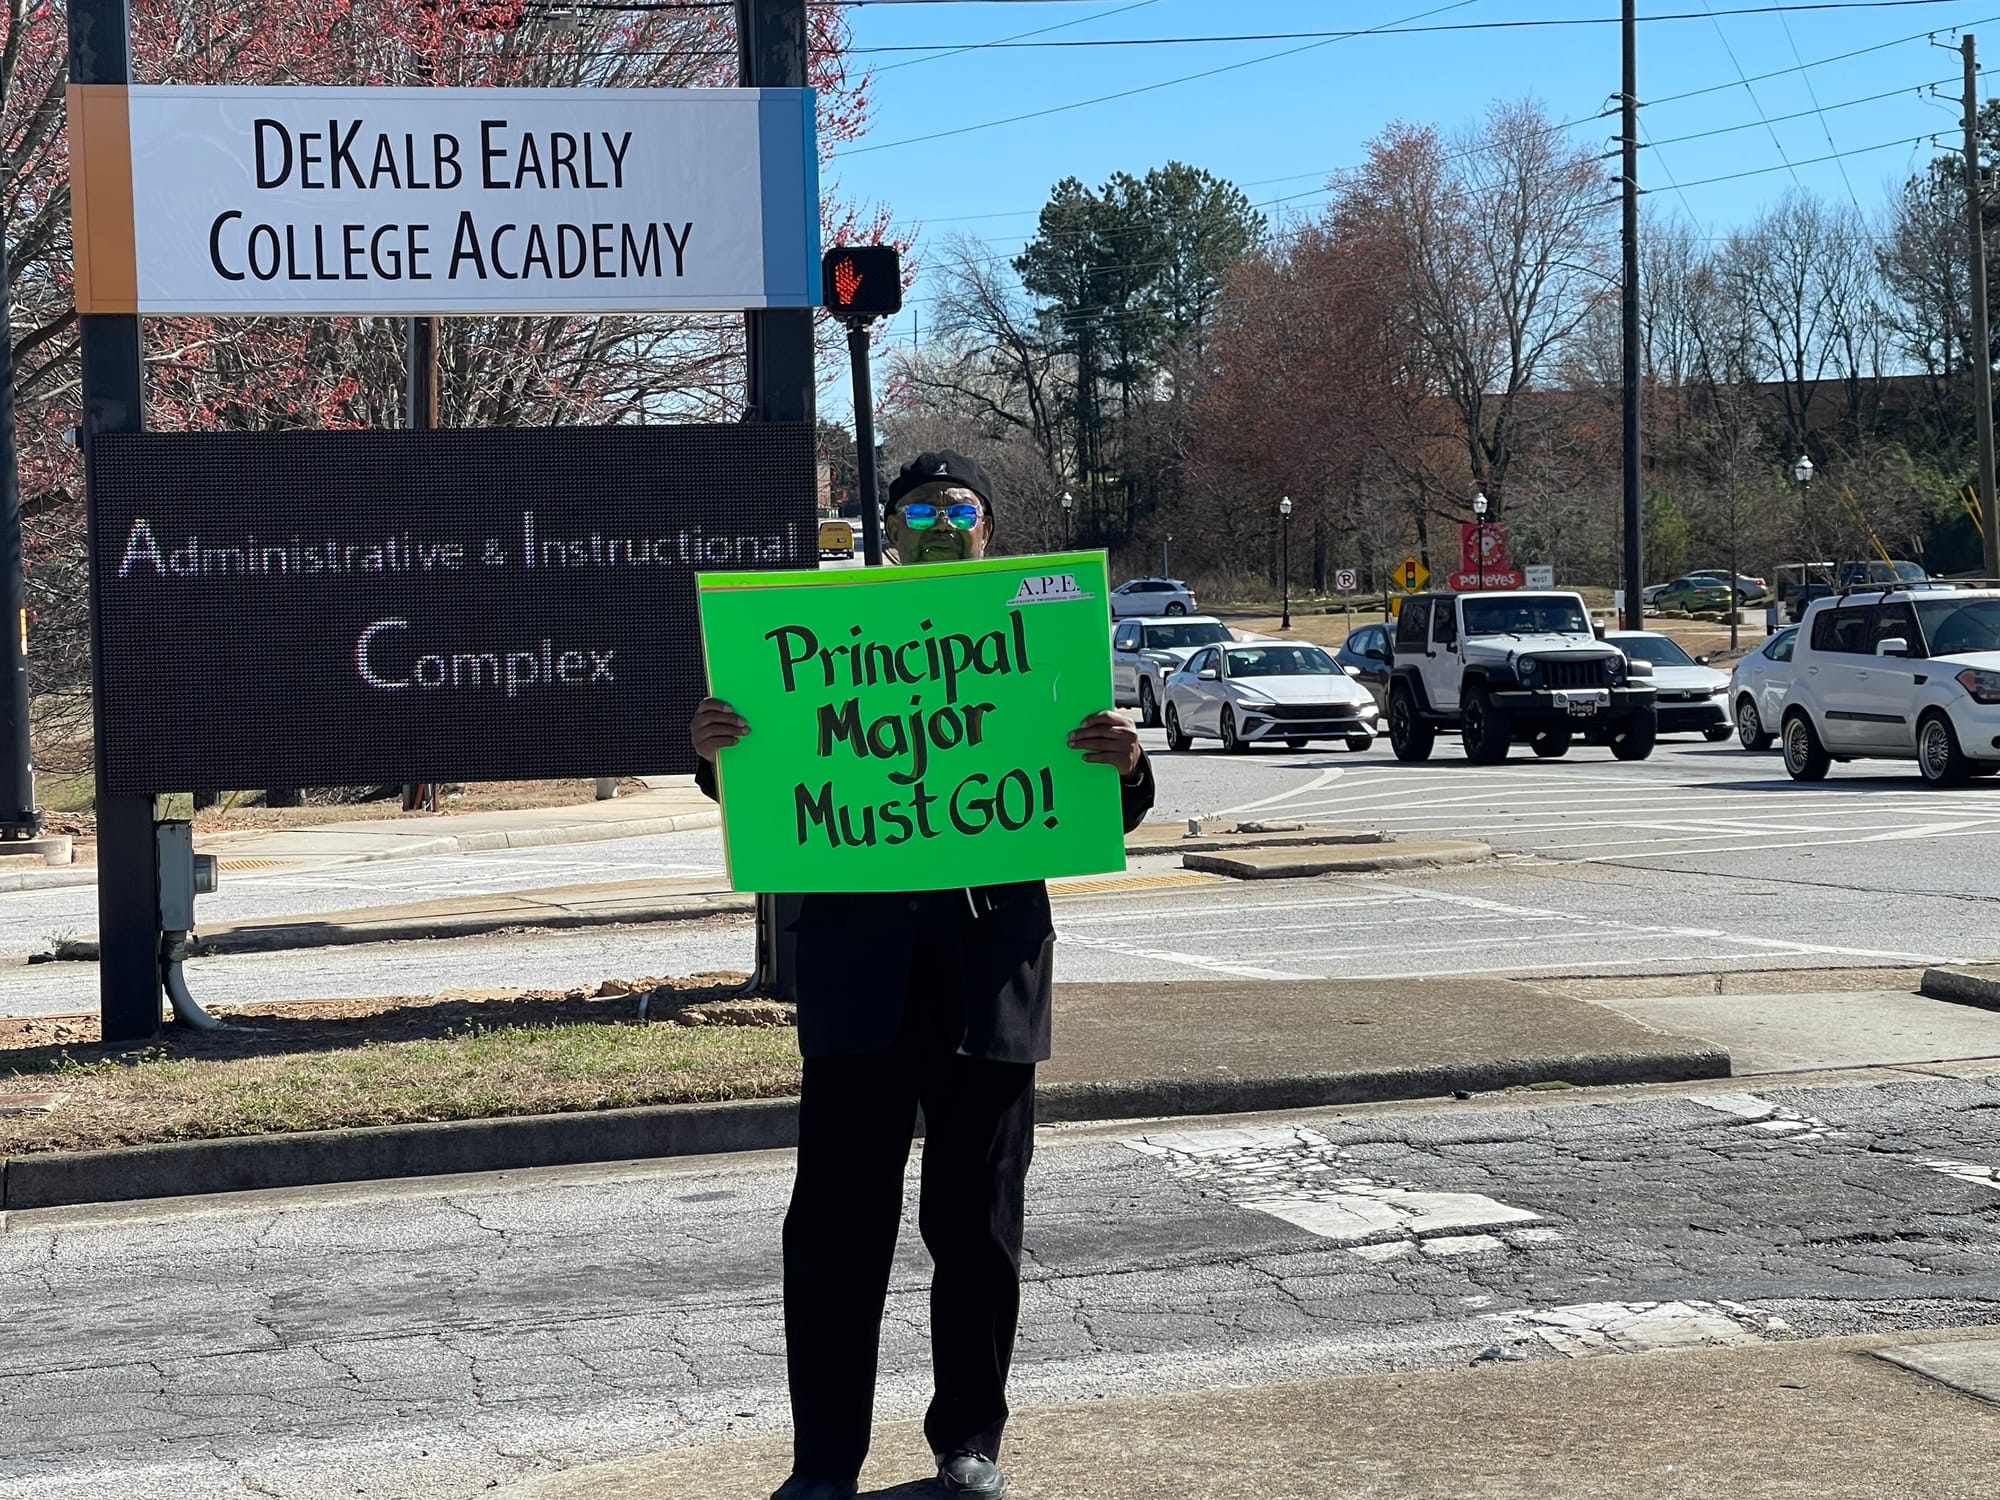 DEKALB EARLY
COLLEGE ACADEMY
Administrative & Instructional
Complex
A.P.E.
Principal
Major
Must GO!
POPEYES
RIGHT LANE
MUST
Jeep